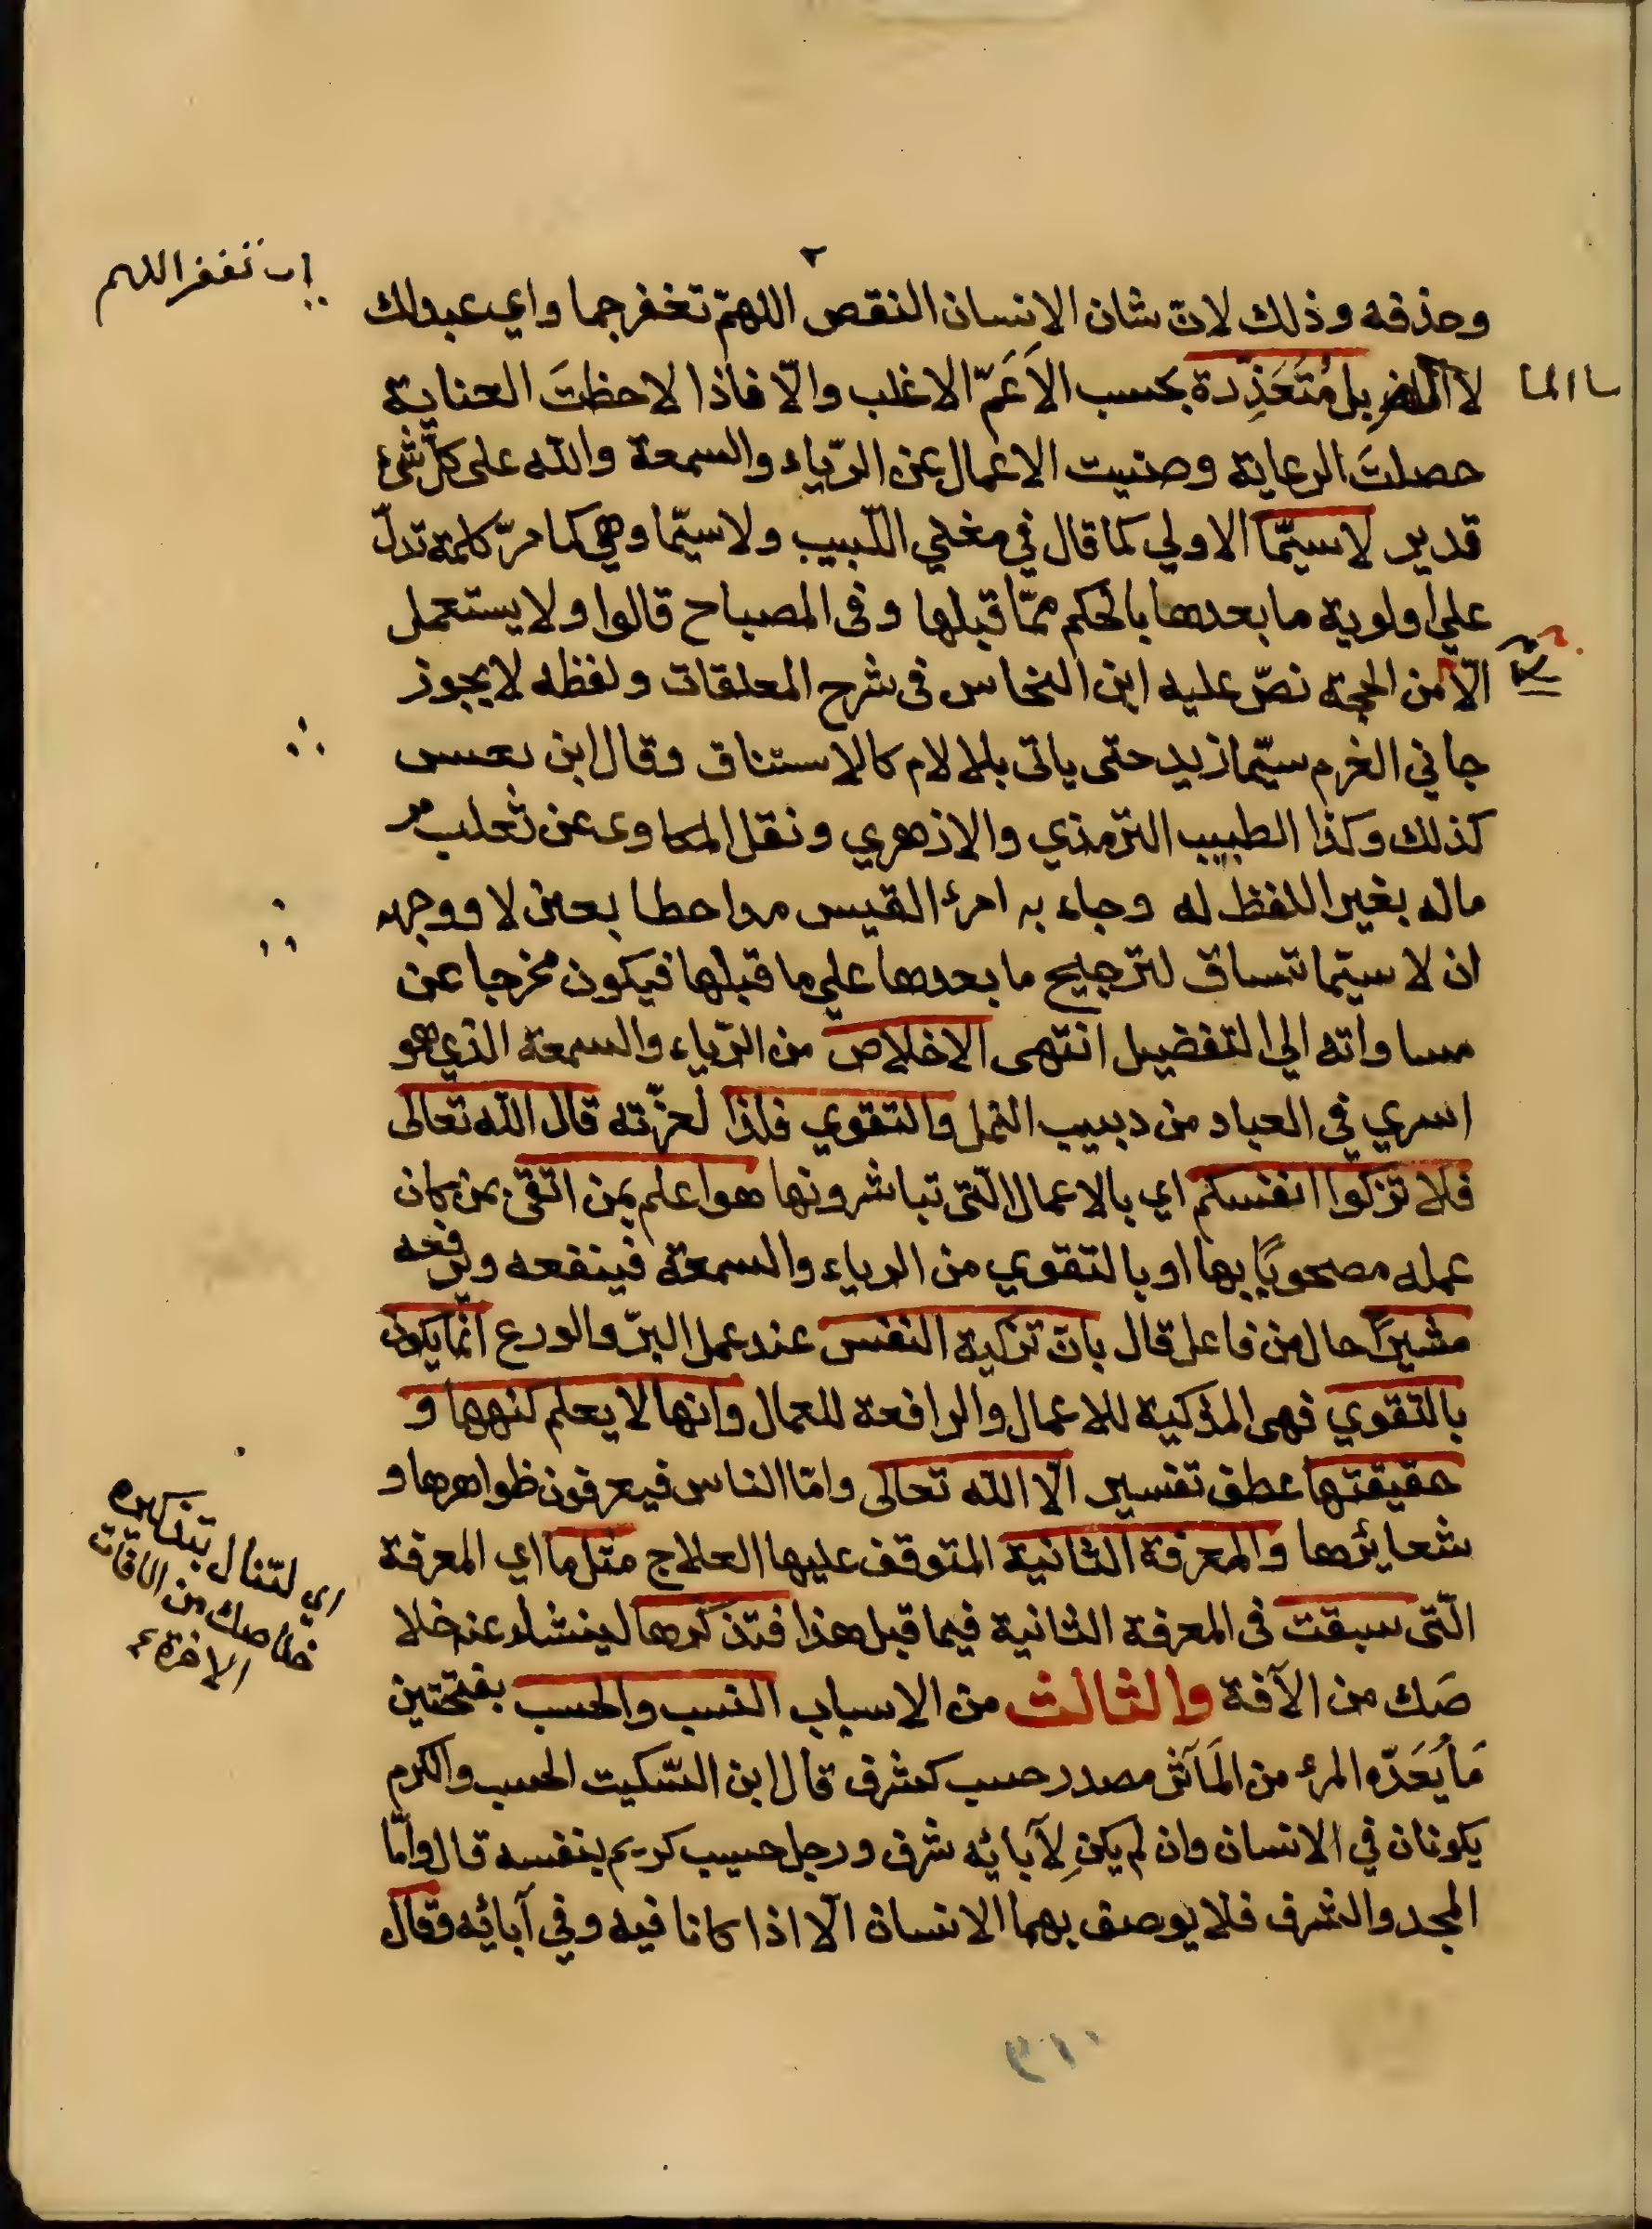 وحذفه وذلك لان شان الانسان النقص اللهمّ تغفر جما واي عبد لك
ان تغفر اللهم
لا بل مُتَعَذِّرة بحسب الاَعَمّ الاغلب والّا فاذا لاحظتَ العناية
حصلتَ الرعاية وصنيت الاعمال عن الرّياء والسمعة والله على كلّ شئ
قدير لاسيّما الاولي كما قال في مغني اللّبيب ولاسيّما وهي كما مرّ كلمة تدلّ
علي اولوية ما بعدها بالحكم ممّا قبلها وفى المصباح قالوا ولا يستعمل
الّا من الحجة نصّ عليه ابن النحاس فى شرح المعلقات ولفظه لا يجوز
جاني الغرم سيّما زيد حتى ياتى بلا لام كالاستناق وقال ابن يعيس
كذلك وكذا الطبيب الترمذي والازهري ونقل عن ثعلب
ماله بغير اللفظ له وجاء به امرئ القيس بعين لا ووجهه
ان لا سيّما تتساق لترجيح ما بعدها علي ما قبلها فيكون مخرجا عن
مساواته الي التفضيل انتهى الاخلاص من الرّياء والسمعة الذي هو
اسري في العباد من دبيب النمل والتقوي فلذا لعزّته قال الله تعالى
فلا تزكوا انفسكم اي بالاعمال الّتى تباشرونها هو اعلم بمن اتقى بمن كان
عمله مصحوبًا بها او بالتقوي من الرياء والسمعة فينفعه ويرفعه
مشيرًا حال من فاعل قال بان تزكية النفس عند عمل البرّ والورع انّما يكون
بالتقوي فهى المذكية للاعمال والرافعة للعمال وانها لا يعلم كنهها و
حقيقتها عطف تفسير الّا الله تعالى وامّا الناس فيعرفون ظواهرها و
شعايرها والمعرفة الثانية المتوقف عليها العلاج مثل ما اي المعرفة
الّتى سبقت فى المعرفة الثانية فيما قبل هذا فتذكرها لينشاء عنه خلا
صَك من الآفة والثالث من الاسباب النسب والحسب بفتحتين
مَا يَعَدّه المرء من المَآثر مصدر حسب كشرف قال ابن السّكيت الحسب والكرم
يكونان في الانسان وان لم يكن لِآبائه شرف ورجل حسيب كريم بنفسه قال وامّا
المجد والشرف فلا يوصف بهما الانسان الّا اذا كانا فيه وفي آبائه وقال
اي لتنال بتذكره
خلاصك من الافات
الاخرة
٣١٠